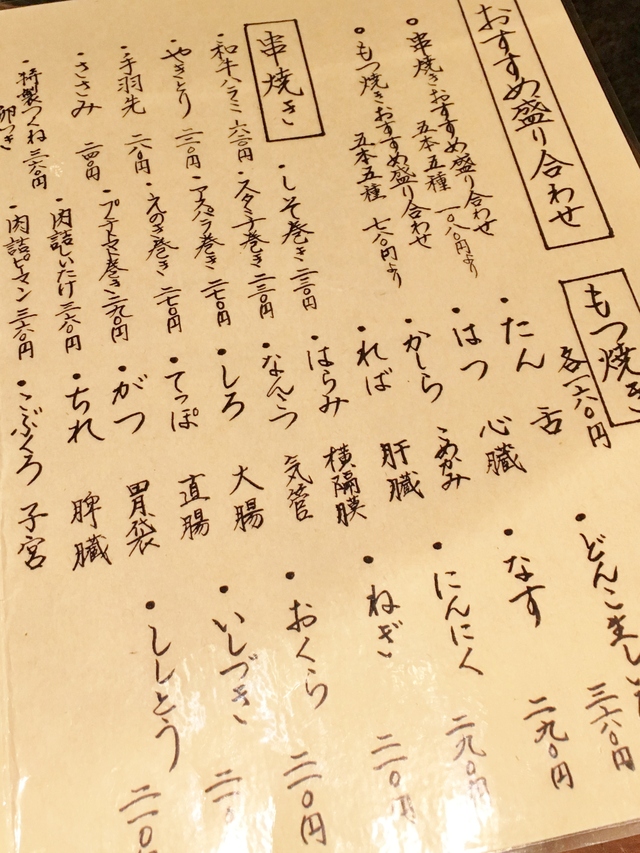 おすすめ盛り合わせ
串焼きおすすめ盛り合わせ
五本五種 一〇八〇円より
もつ焼きおすすめ盛り合わせ
五本五種 七八〇円より
串焼き
和牛ハラミ 六三〇円
やきとり 二一〇円
手羽先 二八〇円
ささみ 二四〇円
特製つくね 三六〇円
卵つき
しそ巻き 二三〇円
スタミナ巻き 二三〇円
アスパラ巻き 二七〇円
えのき巻き 二七〇円
プチトマト巻き 二九〇円
肉詰しいたけ 三六〇円
肉詰ピーマン 三六〇円
もつ焼き
各一六〇円
たん 舌
はつ 心臓
かしら こめかみ
ればー 肝臓
はらみ 横隔膜
なんこつ 気管
しろ 大腸
てっぽ 直腸
がつ 胃袋
ちれ 脾臓
こぶくろ 子宮
どんこ 三六〇円
なす 二九〇円
にんにく 二九〇円
ねぎ 二一〇円
おくら 二一〇円
いしづき 二一〇
ししとう 二一〇